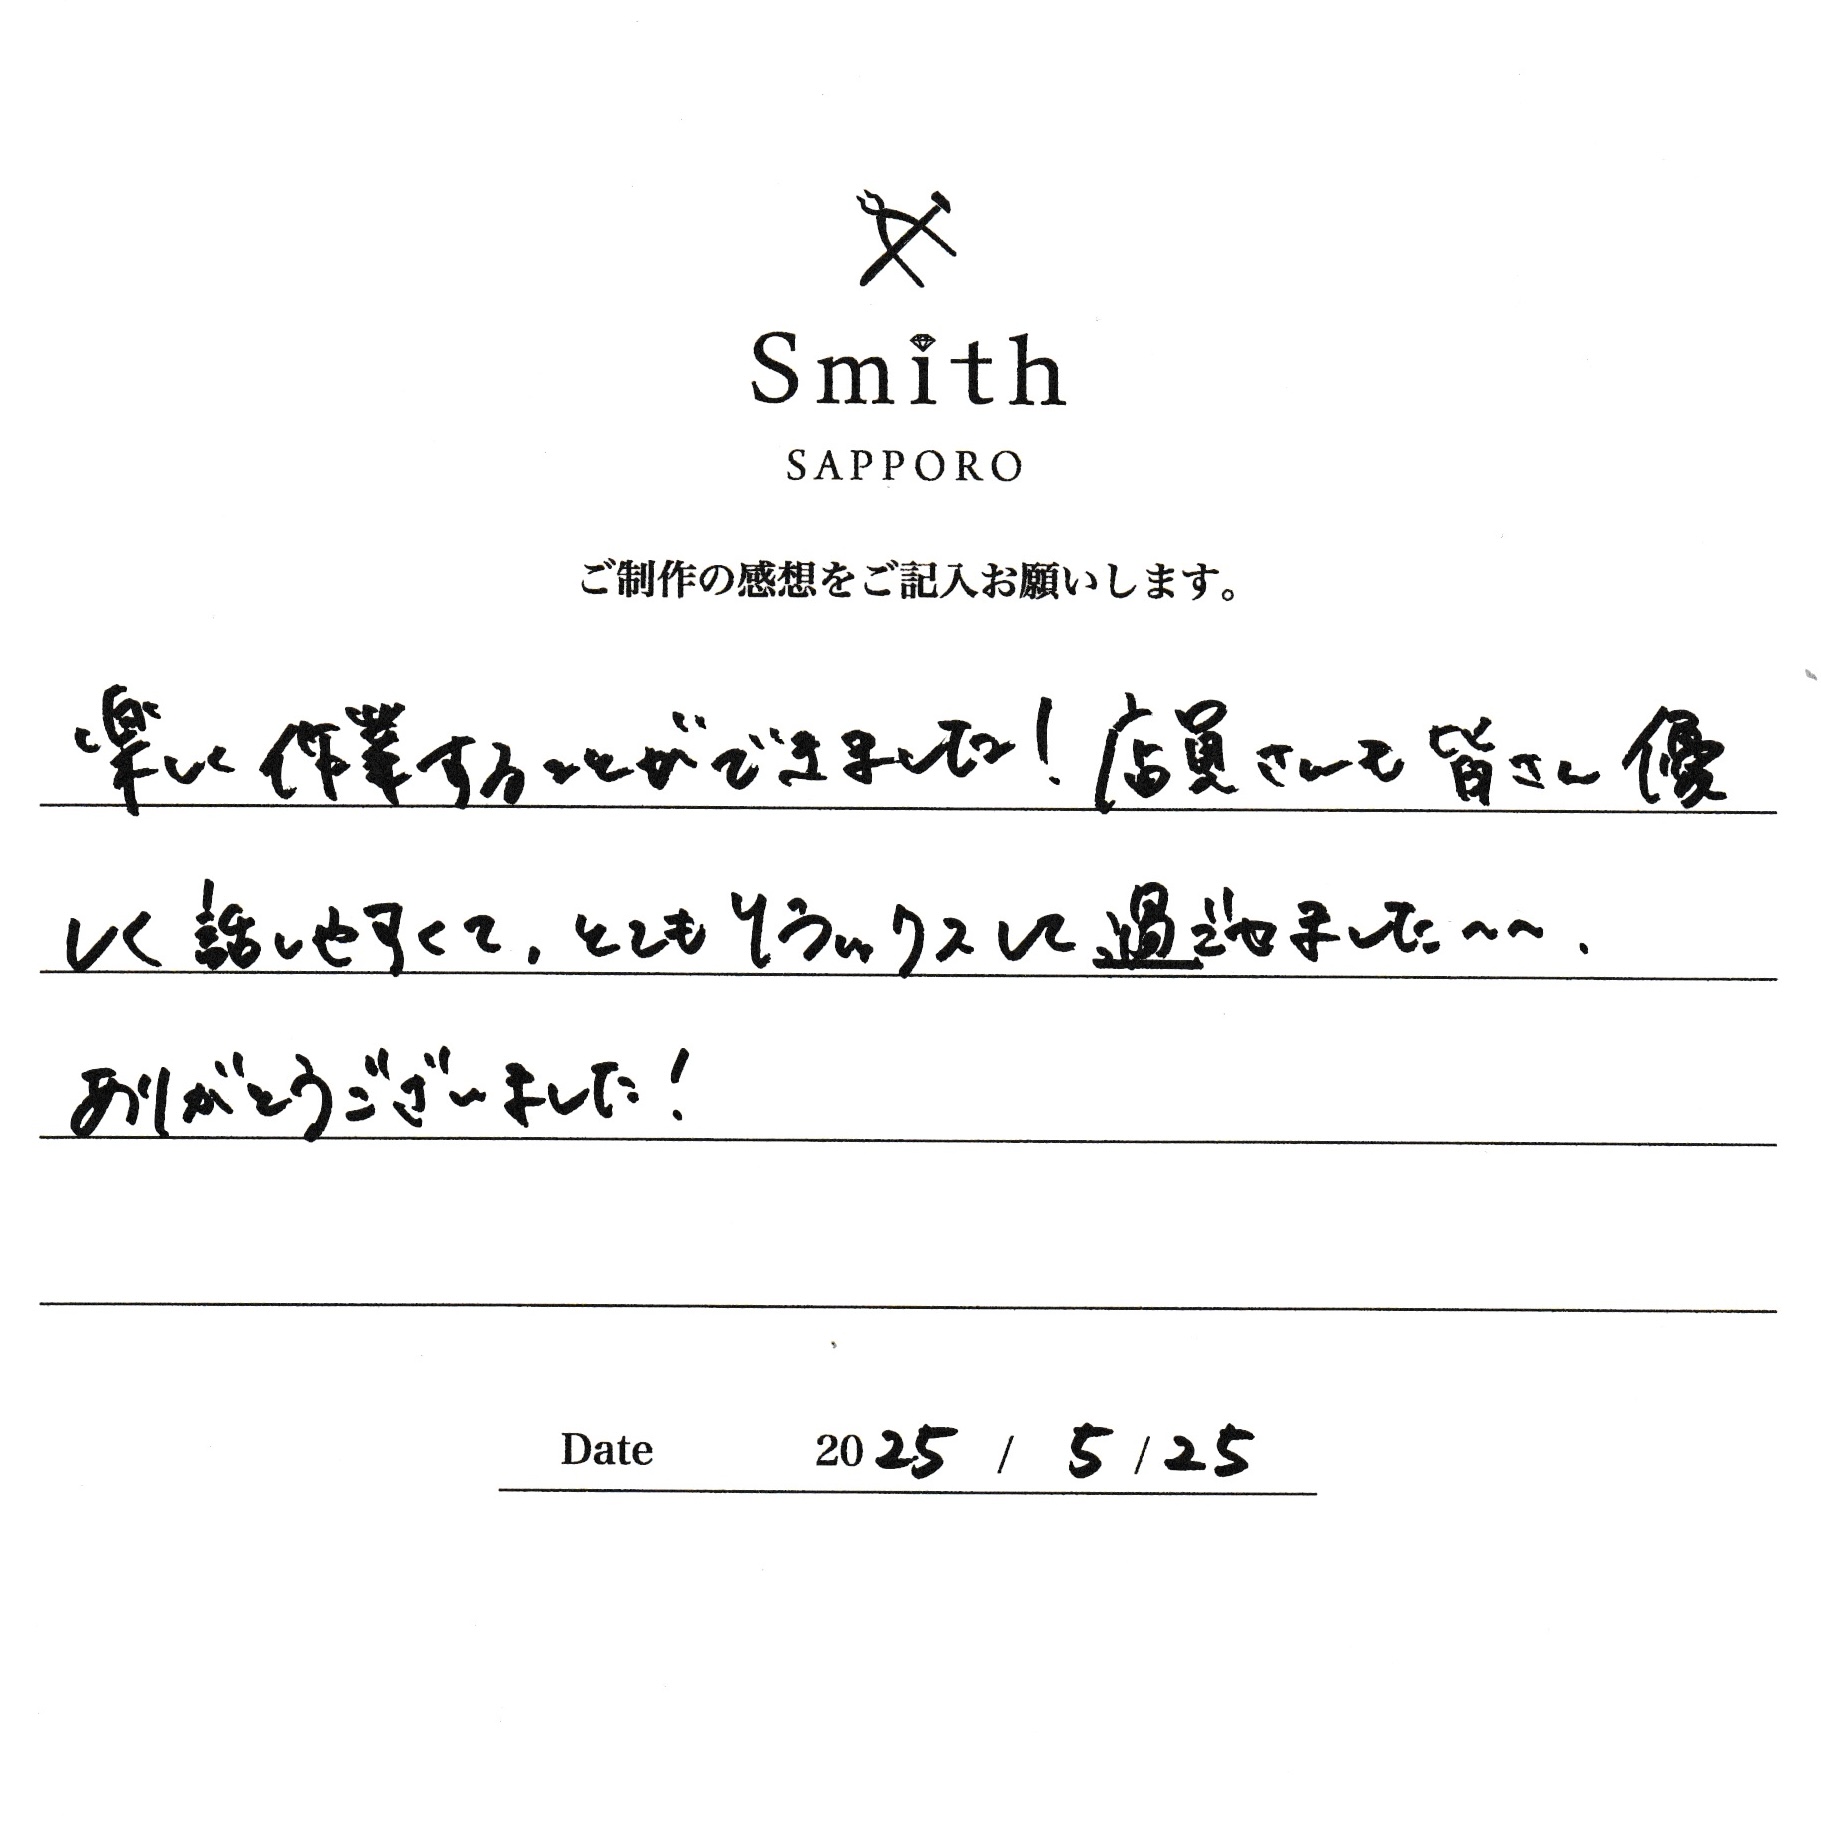 Smith
SAPPORO
ご制作の感想をご記入お願いします。
楽しく作業することができました！店員さんも皆さん優
しく話しやすくて、とてもリラックスして過ごせました〜〜、
ありがとうございました！
Date 2025 / 5 / 25